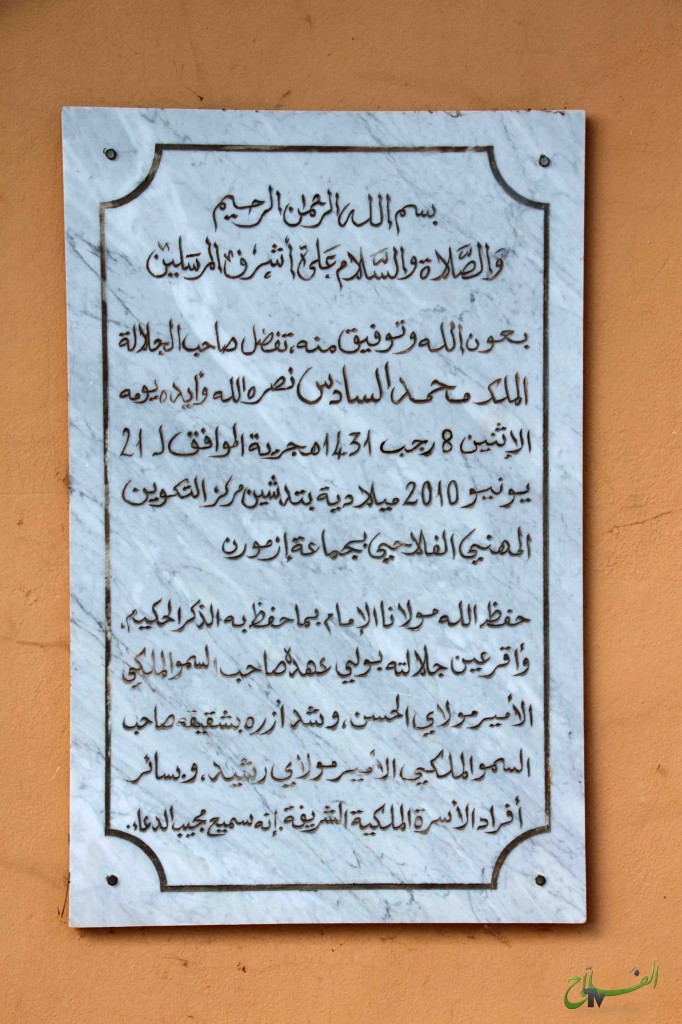 بسم الله الرحمان الرحيم
وَالصَّلَاة والسَّلام عَلىَ أشرف المرسَلين
بعون الله وتوفيق منه، تفضل صاحب الجلالة
الملك محمد السادس نصره الله وأيده يومه
الإثنين 8 رجب 1431 هجرية الموافق لـ 21
يونيو 2010 ميلادية بتدشين مركز التكوين
المهني الفلاحي بجماعة إزمورن
حفظ الله مولانا الإمام بما حفظ به الذكر الحكيم،
وأقر عين جلالته بولي عهده صاحب السمو الملكي
الأمير مولاي الحسن، وشد أزره بشقيقه صاحب
السمو الملكي الأمير مولاي رشيد، وبسائر
أفراد الأسرة الملكية الشريفة. إنه سميع مجيب الدعاء.
الفلاح
TV